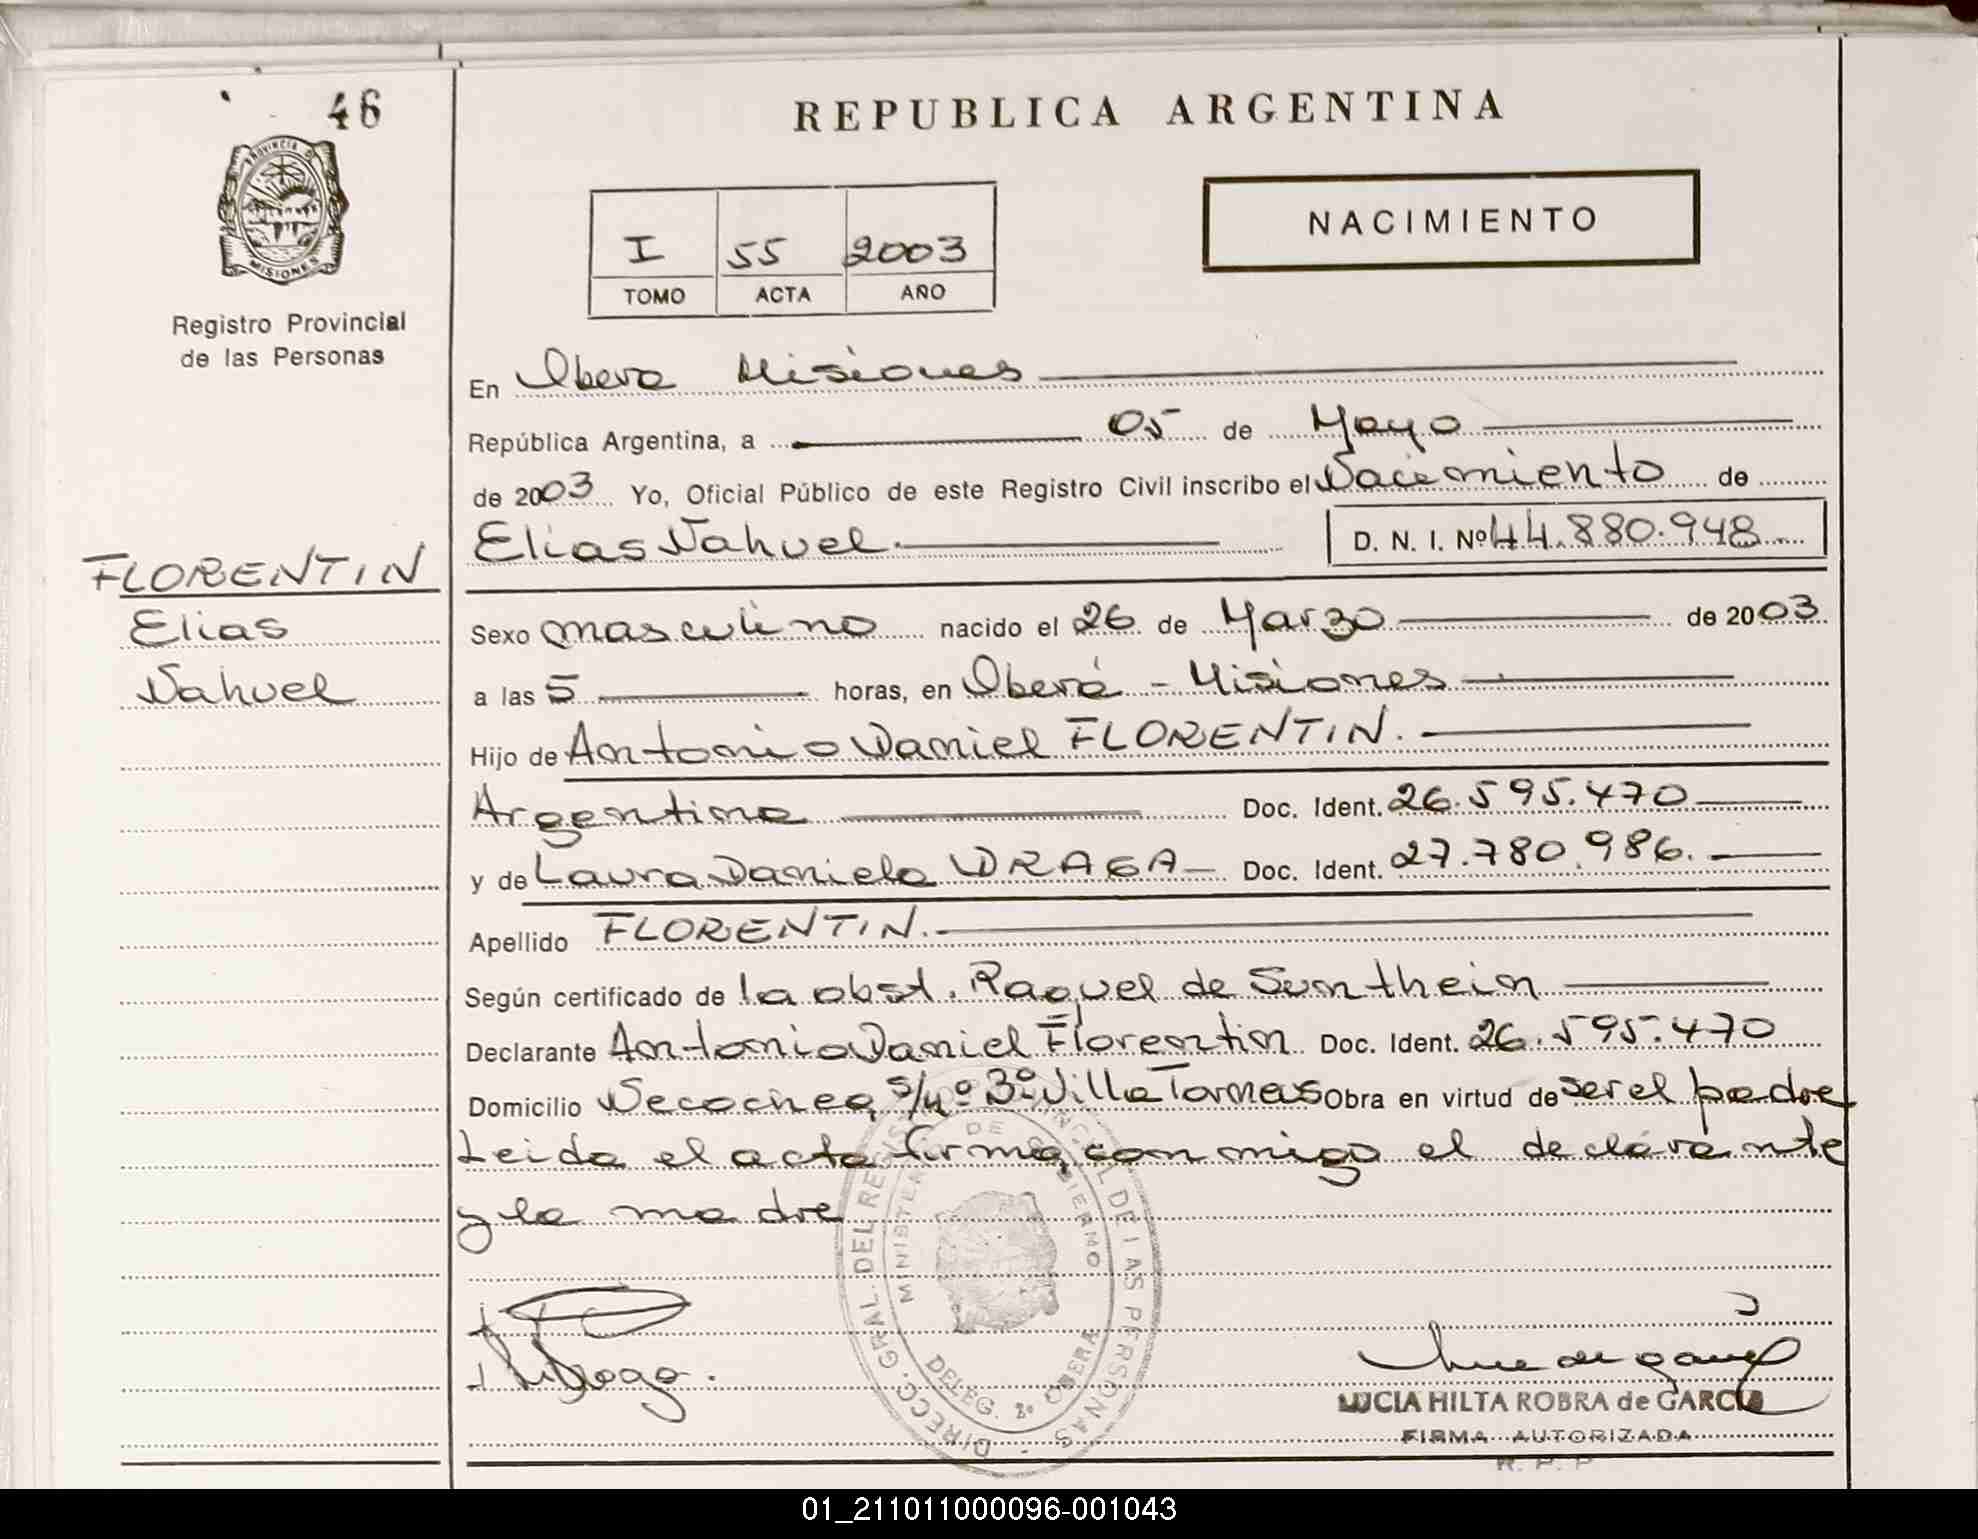 46
REPUBLICA ARGENTINA
PROVINCIA D MISIONES
Registro Provincial
de las Personas
NACIMIENTO
I 55 2003
TOMO ACTA AÑO
En Obera Misiones
República Argentina, a 05 de Mayo
de 2003 Yo, Oficial Público de este Registro Civil inscribo el Nacimiento de
Elias Nahuel. D. N. I. Nº 44.880.948
FLORENTIN
Elias
Nahuel
Sexo masculino nacido el 26 de Marzo de 2003
a las 5 horas, en Oberá - Misiones
Hijo de Antonio Daniel FLORENTIN.
Argentina Doc. Ident. 26.595.470
y de Laura Daniela DRAGA Doc. Ident. 27.780.986.
Apellido FLORENTIN.
Según certificado de la obst. Raquel de Suntheim
Declarante Antonio Daniel Florentin Doc. Ident. 26.595.470
Domicilio Necochea s/nº Bº Villa Torneus Obra en virtud de ser el padre
Leida el acta firma conmigo el declarante
y la madre
DIRECC. GRAL. DEL REGIS DE LAS PERSONAS
MINISTER DE GOBIERNO
DELEG. 2º OBERA
LUCIA HILTA ROBRA de GARCIA
FIRMA AUTORIZADA
R. P. P
01_211011000096-001043